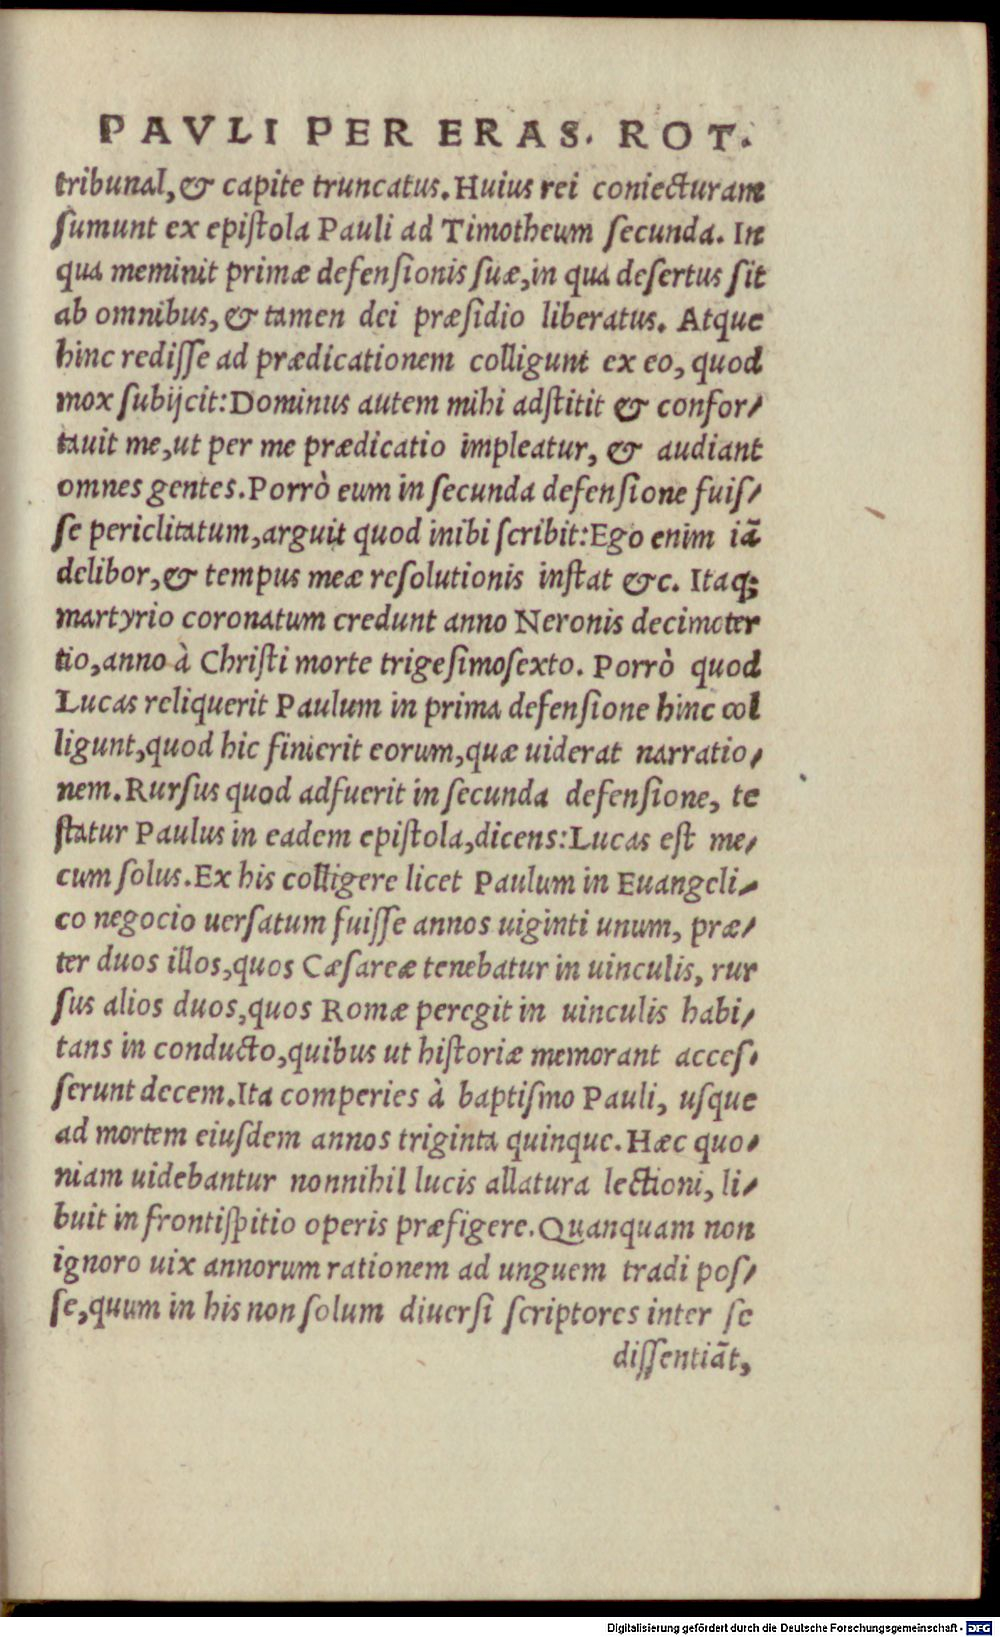 PAVLI PER ERAS. ROT.
tribunal, & capite truncatus. Huius rei coniecturam
ſumunt ex epiſtola Pauli ad Timotheum ſecunda. In
qua meminit primæ defenſionis ſuæ, in qua deſertus ſit
ab omnibus, & tamen dei præſidio liberatus. Atque
hinc rediſſe ad prædicationem colligunt ex eo, quod
mox ſubijcit: Dominus autem mihi adſtitit & confor⸗
tauit me, ut per me prædicatio impleatur, & audiant
omnes gentes. Porrò eum in ſecunda defenſione fuiſ⸗
ſe periclitatum, arguit quod inibi ſcribit: Ego enim iã
delibor, & tempus meæ reſolutionis inſtat &c. Itaq;
martyrio coronatum credunt anno Neronis decimoter
tio, anno à Chriſti morte trigeſimoſexto. Porrò quod
Lucas reliquerit Paulum in prima defenſione hinc col
ligunt, quod hic finierit eorum, quæ uiderat narratio⸗
nem. Rurſus quod adfuerit in ſecunda defenſione, te
ſtatur Paulus in eadem epiſtola, dicens: Lucas eſt me⸗
cum ſolus. Ex his colligere licet Paulum in Euangeli⸗
co negocio uerſatum fuiſſe annos uiginti unum, præ⸗
ter duos illos, quos Cæſareæ tenebatur in uinculis, rur
ſus alios duos, quos Romæ peregit in uinculis habi⸗
tans in conducto, quibus ut hiſtoriæ memorant acceſ⸗
ſerunt decem. Ita comperies à baptiſmo Pauli, uſque
ad mortem eiuſdem annos triginta quinque. Hæc quo⸗
niam uidebantur nonnihil lucis allatura lectioni, li⸗
buit in frontiſpitio operis præfigere. Quanquam non
ignoro uix annorum rationem ad unguem tradi poſ⸗
ſe, quum in his non ſolum diuerſi ſcriptores inter ſe
diſſentiãt,
Digitalisierung gefördert durch die Deutsche Forschungsgemeinschaft - DFG